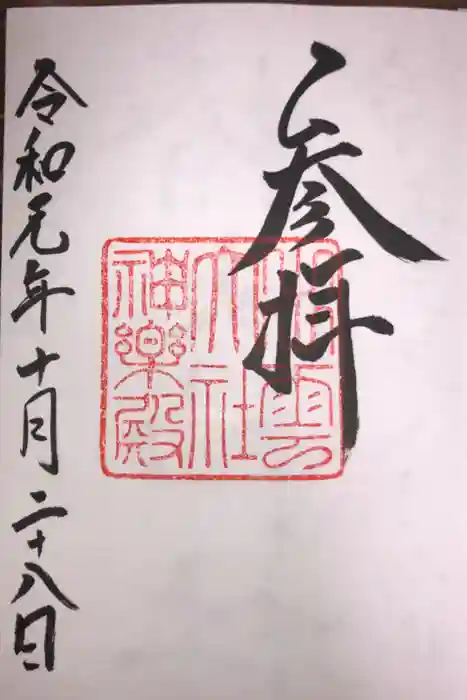 参拝
出雲
大社
神楽殿
令和元年十月二十八日